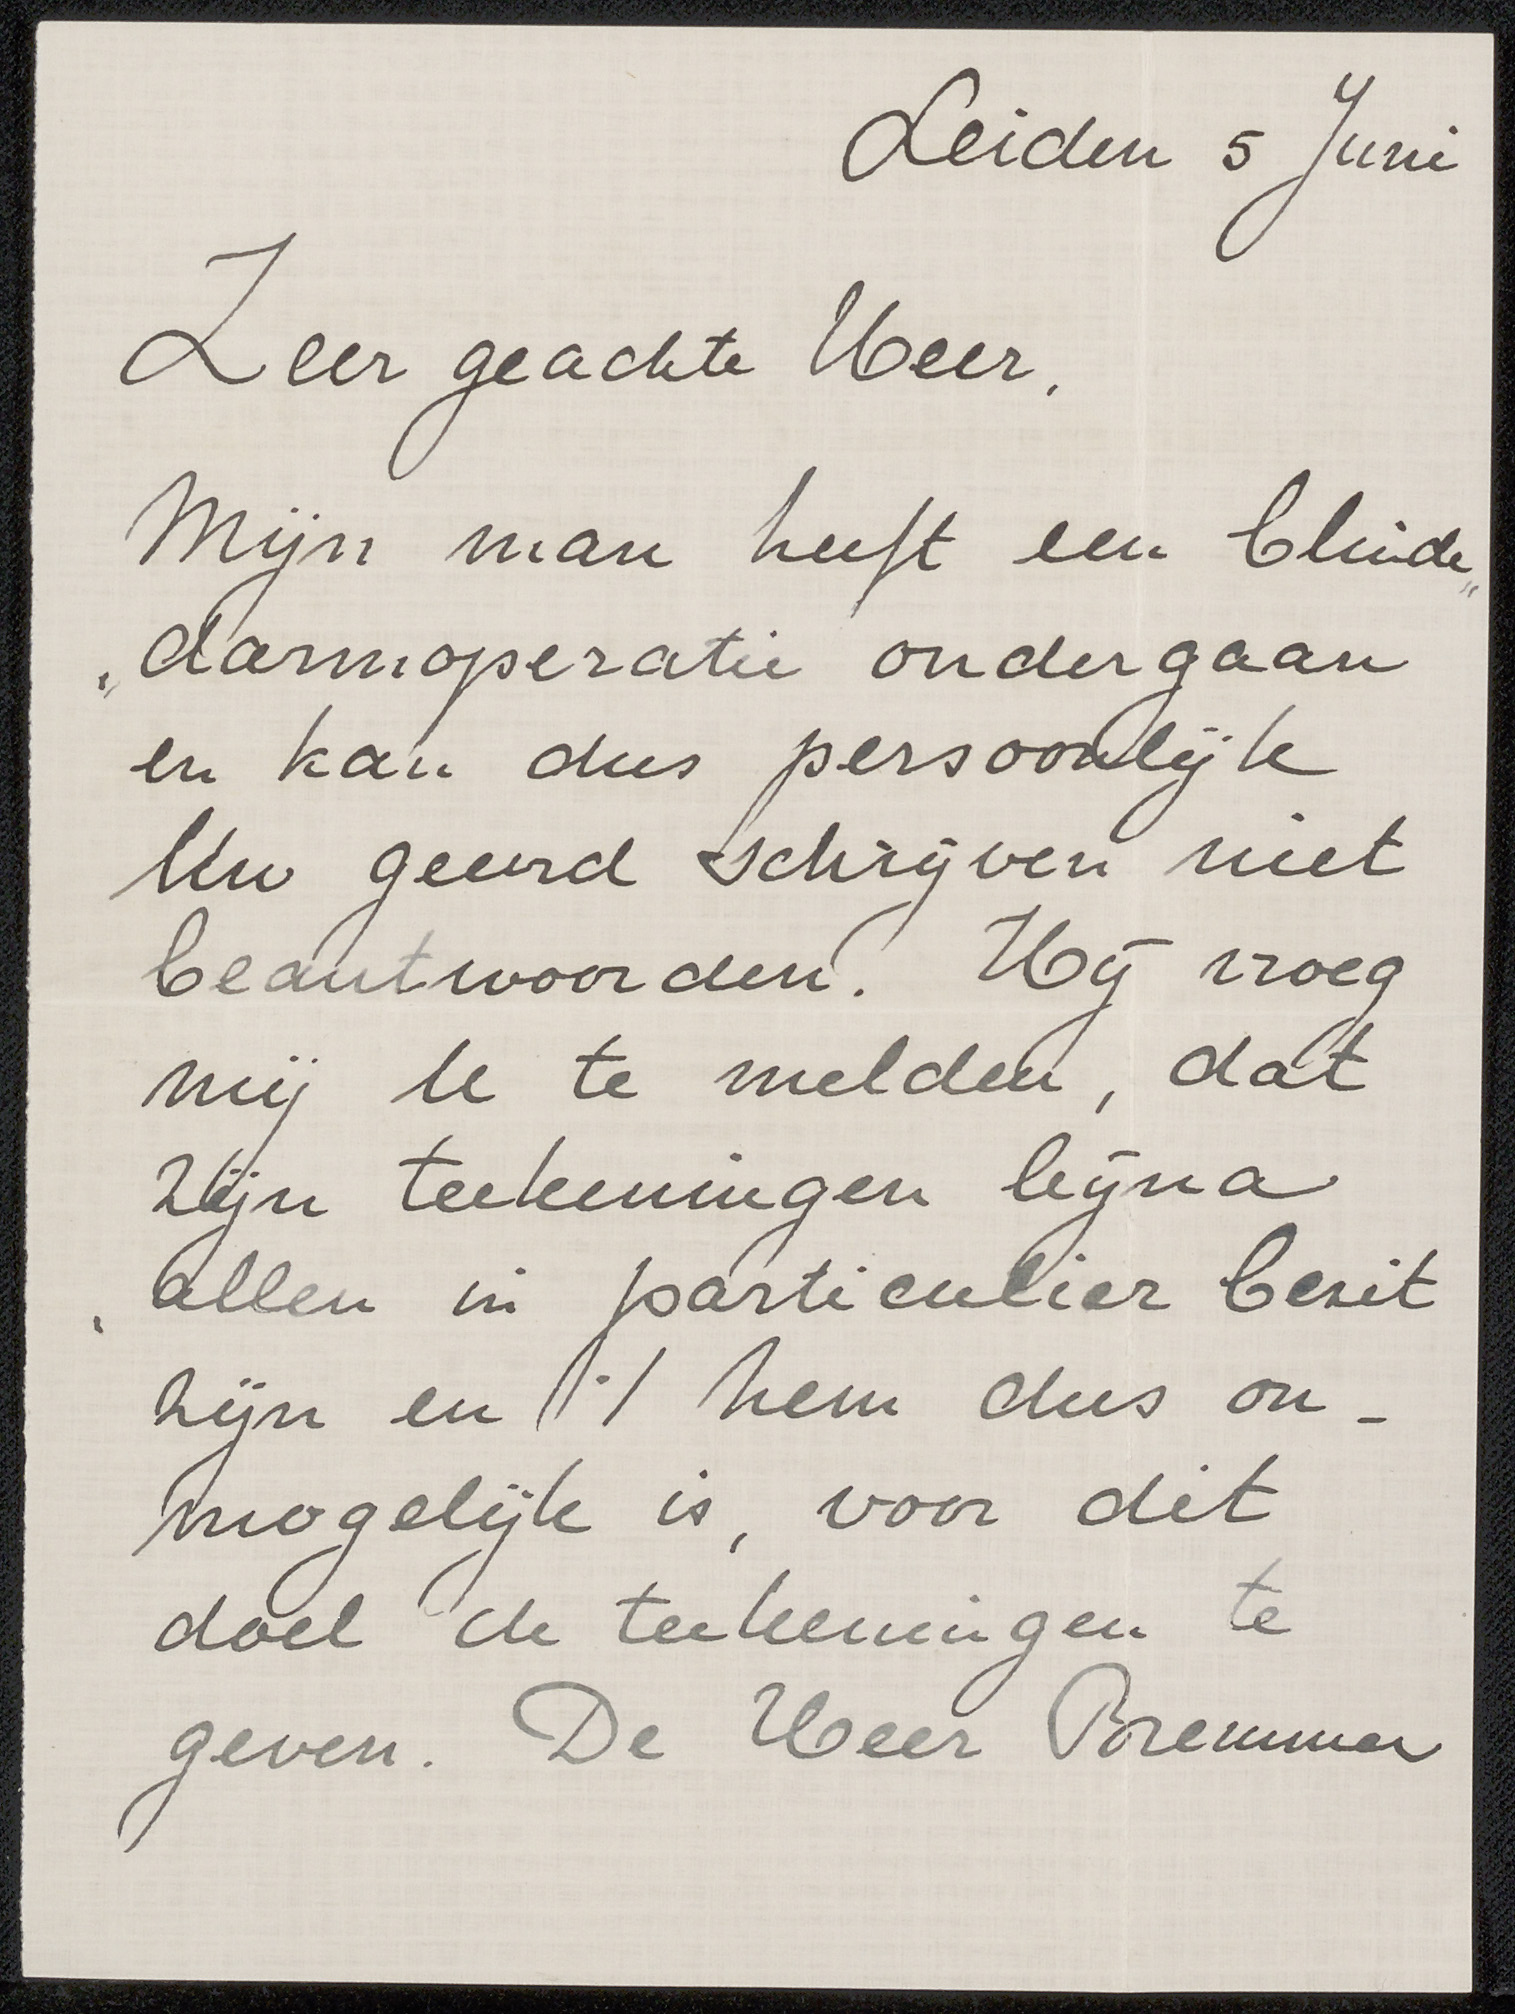 Leiden 5 Juni
Zeer geachte Heer,
Mijn man heeft een blinde„
„darmoperatie ondergaan
en kan dus persoonlijk
Uw geeerd schrijven niet
beantwoorden. Hij vroeg
mij U te melden, dat
zijn teekeningen bijna
allen in particulier bezit
zijn en 't hem dus on-
mogelijk is, voor dit
doel de teekeningen te
geven. De Heer Bremmer